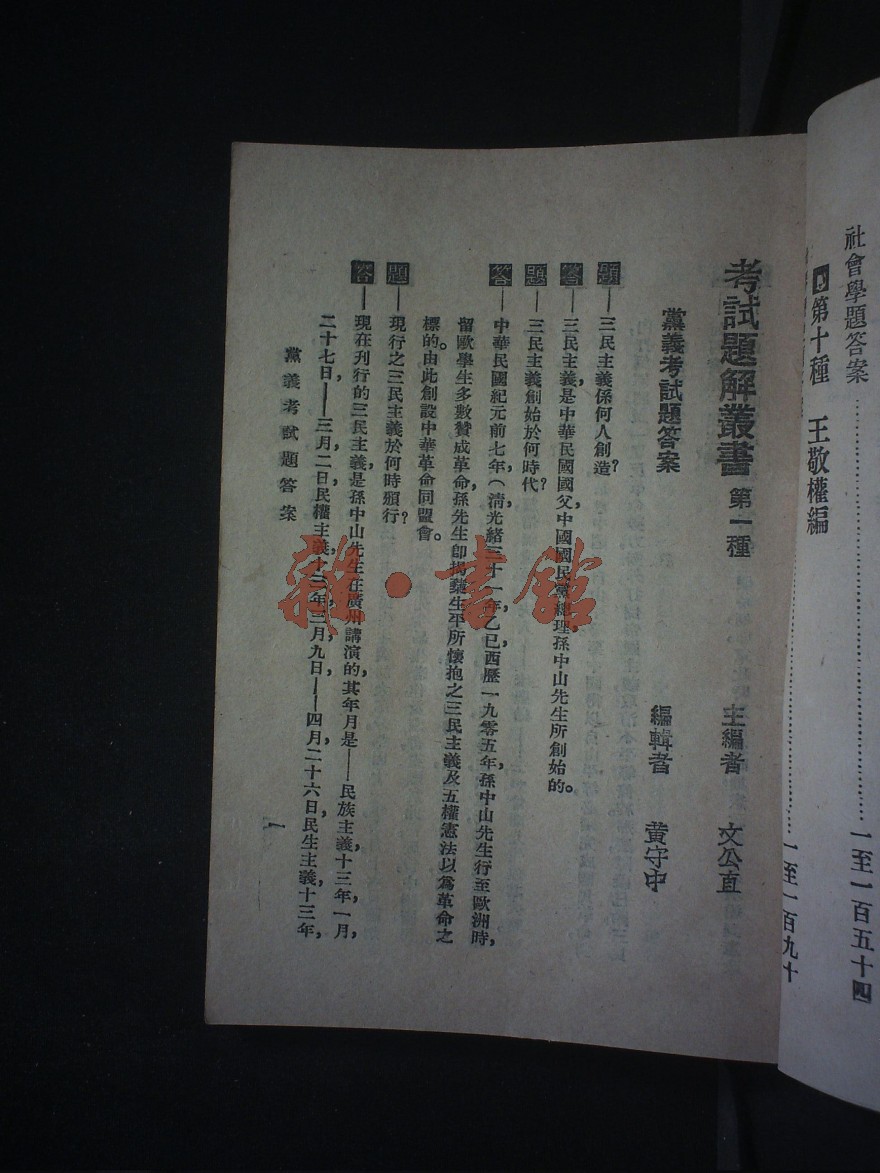 社會學題答案………………一至一百五十四
第十種　王敬權編………………一至一百九十
考試題解叢書　第一種　主編者　文公直
黨義考試題答案　編輯者　黃守中
題——三民主義係何人創造？
答——三民主義，是中華民國國父中國國民黨總理孫中山先生所創始的。
題——三民主義創始於何時代？
答——中華民國紀元前七年，（清光緒三十一年乙巳西歷一九零五年，孫中山先生行至歐洲時，
留歐學生多數贊成革命，孫先生卽揭櫫生平所懷抱之三民主義及五權憲法以爲革命之
標的。由此創設中華革命同盟會。
題——現行之三民主義於何時頒行？
答——現在刊行的三民主義，是孫中山先生在廣州講演的，其年月是——民族主義，十三年，一月，
二十七日，——三月二日，民權主義，十三年，三月九日——四月二十六日，民生主義，十三年，
黨義考試題答案
一
雜·書館